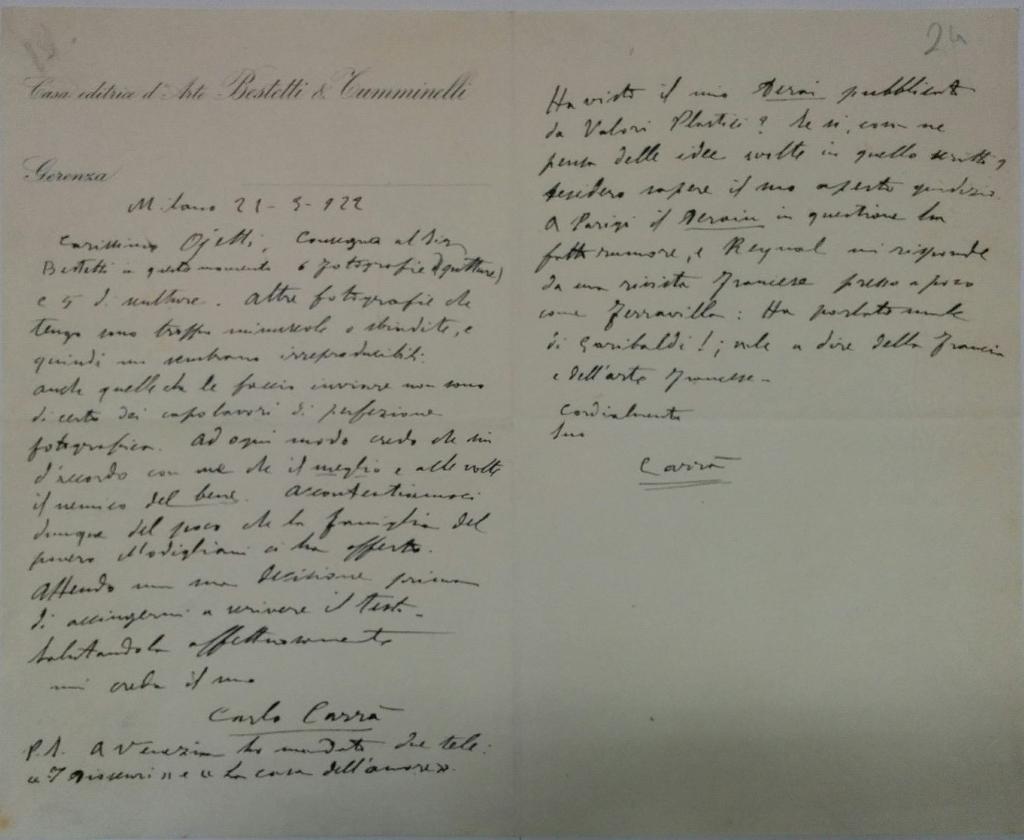 24
Casa editrice d'Arte Bestetti & Tumminelli
Gerenza
Milano 21-3-922
Carissimo Ojetti, Consegno al Sig
Bestetti in questo momento 6 fotografie (di pitture)
e 5 di sculture. Altre fotografie che
tengo sono troppo minuscole o sbiadite, e
quindi mi sembrano irreproducibili.
anche quelle che le faccio inviare non sono
di certo dei capolavori di perfezione
fotografica. Ad ogni modo credo che sia
d'accordo con me che il meglio e alle volte
il nemico del bene. Accontentiamoci
dunque del poco che la famiglia del
povero Modigliani ci ha offerto.
Attendo una sua decisione prima
di accingermi a scrivere il testo.
Salutandola affettuosamente
mi creda il suo
Carlo Carrà
P.S. A Venezia ho mandato due tele:
"I Dioscuri" e "La casa dell'amore".
Ha visto il mio Derain pubblicato
da Valori Plastici? Se sì, come ne
pensa delle idee svolte in quello scritto?
desidero sapere il suo aperto giudizio.
A Parigi il Derain in questione ha
fatto rumore, e Reynal mi risponde
da una rivista francese presso a poco
come Ferravilla: Ha parlato male
di Garibaldi!; vale a dire della Francia
e dell'arte francese.
Cordialmente
Suo
Carrà